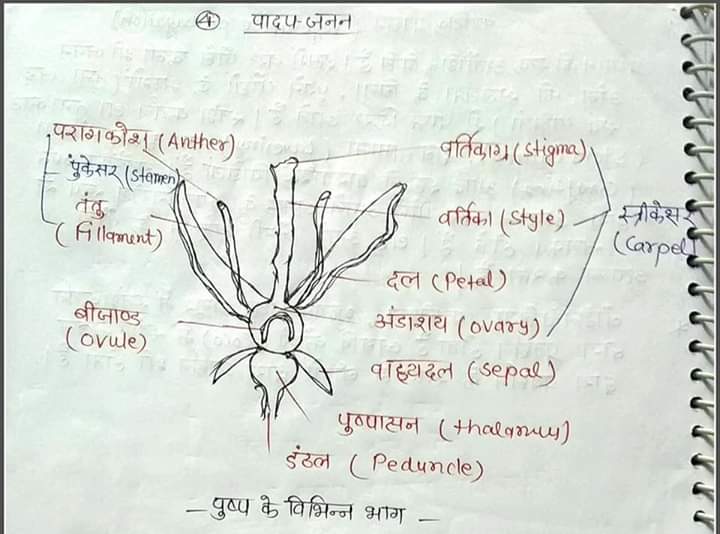 ④ पादप-जनन
परागकोश (Anther)
पुंकेसर (Stamen)
तंतु
(Fillament)
बीजाण्ड
(Ovule)
वर्तिकाग्र (Stigma)
वर्तिका (Style)
स्त्रीकेसर
(Carpel)
दल (Petal)
अंडाशय (Ovary)
वाह्यदल (Sepal)
पुष्पासन (thalamus)
डंठल (Peduncle)
– पुष्प के विभिन्न भाग –